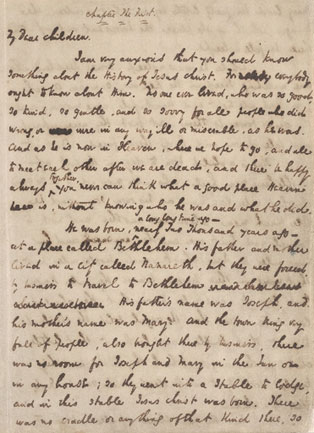 Chapter The First.
My Dear Children.
I am very anxious that you should know
something about the History of Jesus Christ. For everybody
ought to know about Him. No one ever lived, who was so good,
so kind, so gentle, and so sorry for all people who did
wrong, or were in any way ill or miserable, as he was.
And as he is now in Heaven, where we hope to go, and all
to meet each other after we are dead, and there be happy
always together, you never can think what a good place Heaven
is, without knowing who he was and what he did.
He was born, a long long time ago—nearly Two Thousand years ago—
at a place called Bethlehem. His father and mother
lived in a city called Nazareth, but they were forced
by business to travel to Bethlehem
His father's name was Joseph, and
his mother's name was Mary. And the town being very
full of people, also brought there by business, there
was no room for Joseph and Mary in the Inn or
in any house; so they went into a Stable to lodge,
and in this stable Jesus Christ was born. There
was no cradle or anything of that kind there, so